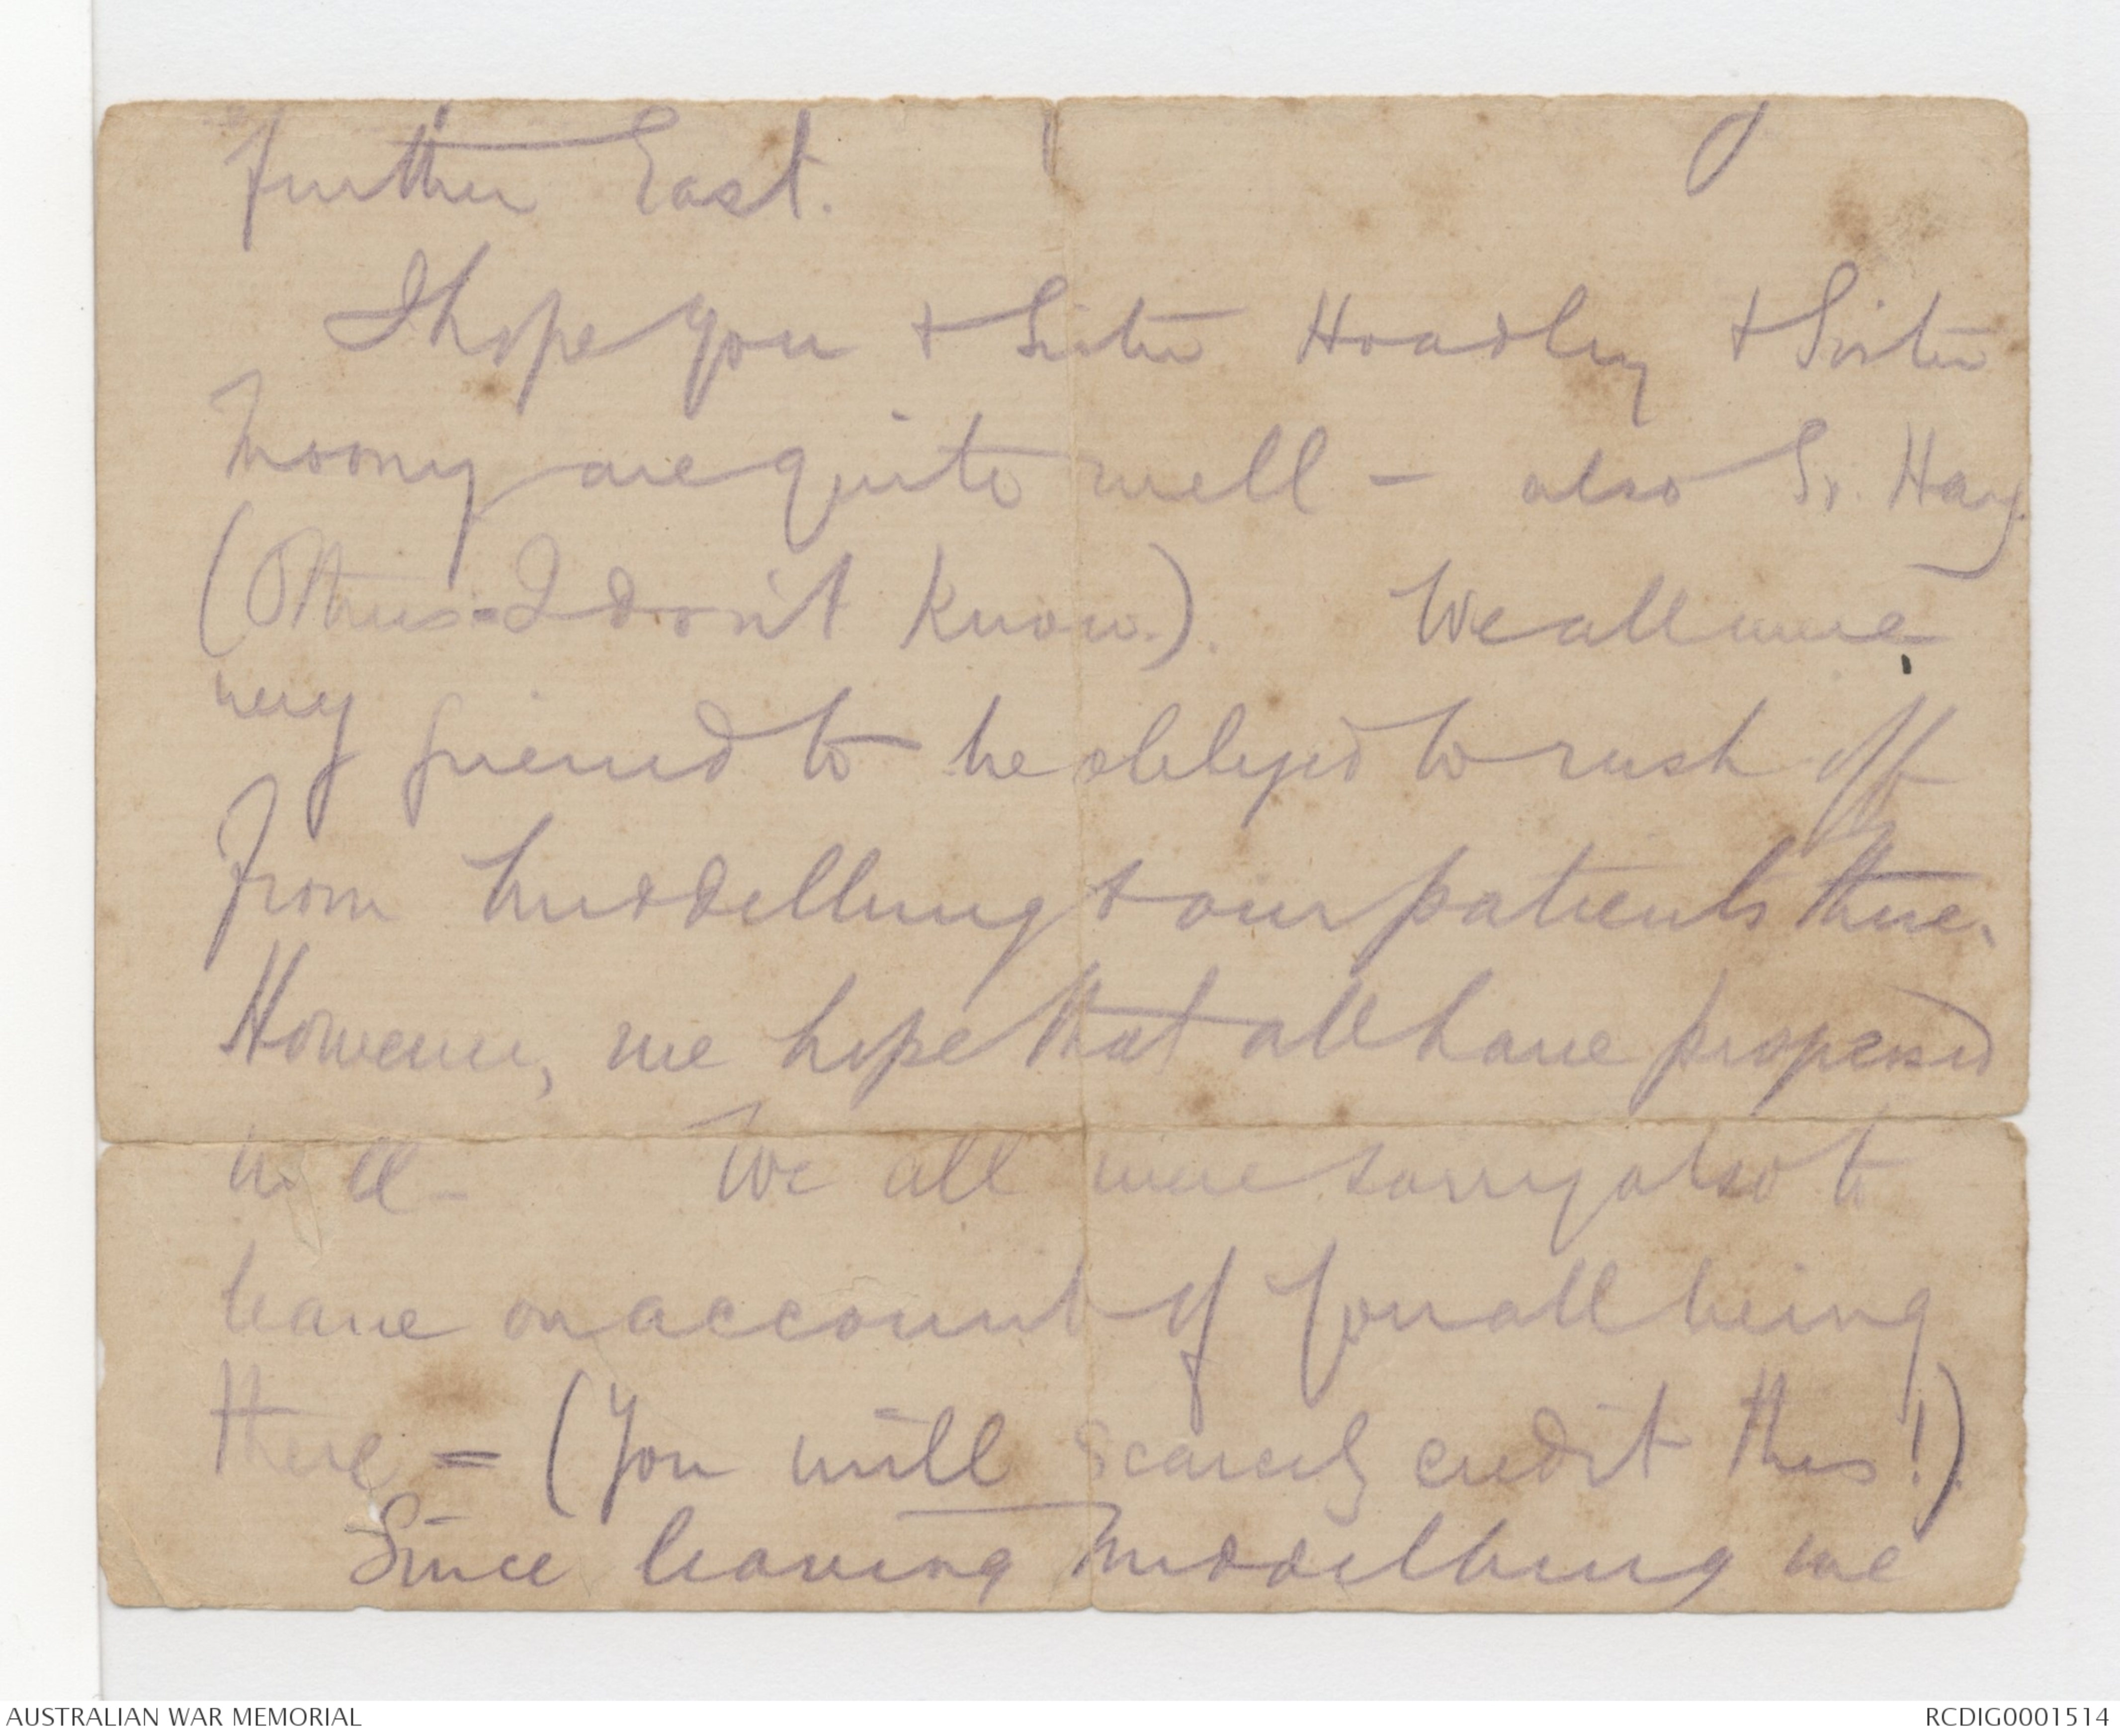 further East.
I hope you & Sister Hoadley & Sister
Moony are quite well - also Sr. Hay.
(Others - I don't know.). We all were
very grieved to be obliged to rush off
from Middelburg & our patients there.
However, we hope that all have progressed
well - We all were sorry also to
leave on account of you all being
there = (You will scarcely credit this!).
Since leaving Middelburg we
AUSTRALIAN WAR MEMORIAL
RCDIG0001514